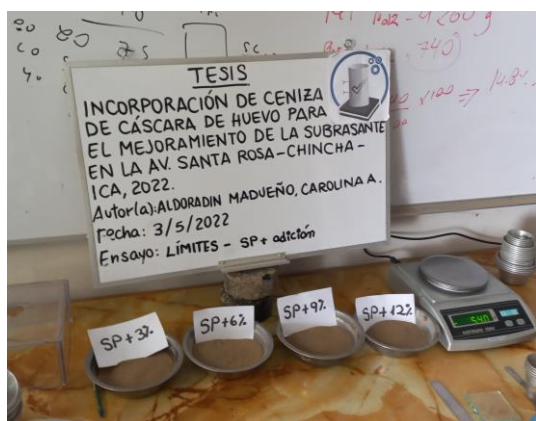 TESIS
INCORPORACIÓN DE CENIZA
DE CÁSCARA DE HUEVO PARA
EL MEJORAMIENTO DE LA SUBRASANTE
EN LA AV. SANTA ROSA-CHINCHA-
ICA, 2022.
Autor(a): ALDORADIN MADUEÑO, CAROLINA A.
Fecha: 3/5/2022
Ensayo: LÍMITES - SP+ adición
SP+3%
SP+6%
SP+9%
SP+12%
540